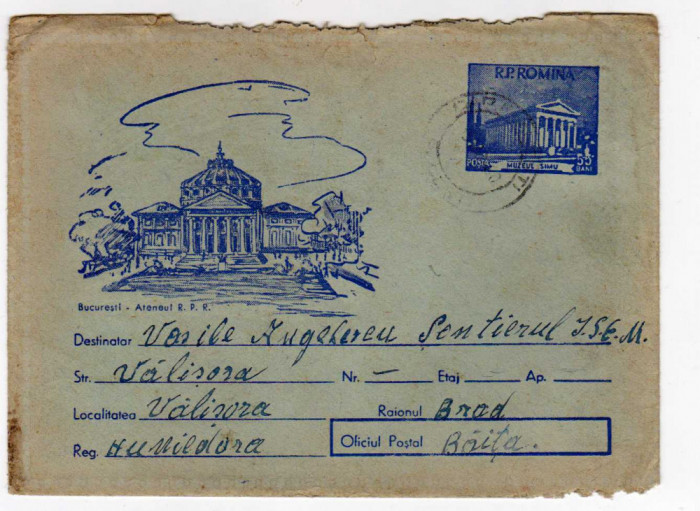 R.P. ROMINA
POSTA MUZEUL SIMU 55 BANI
Bucuresti - Ateneul R. P. R.
Destinatar Vasile Anghelescu Șentierul I.S.E.M.
Str. Vălișora Nr. – Etaj Ap.
Localitatea Vălișora Raionul Brad
Reg. Hunedoara Oficiul Poștal Băița.